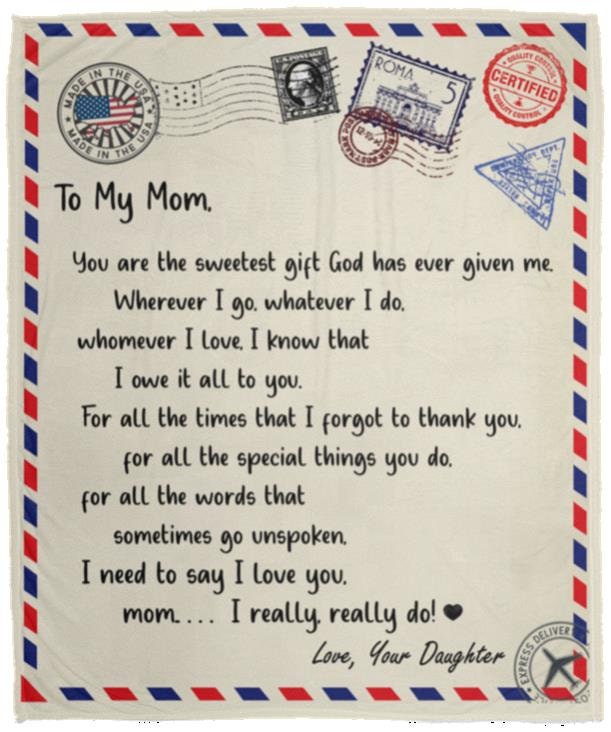 MADE IN THE USA
MADE IN THE USA
U.S. POSTAGE
ROMA
5
QUALITY CONTROL
CERTIFIED
QUALITY CONTROL
To My Mom,
You are the sweetest gift God has ever given me.
Wherever I go, whatever I do,
whomever I love, I know that
I owe it all to you.
For all the times that I forgot to thank you,
for all the special things you do,
for all the words that
sometimes go unspoken,
I need to say I love you,
mom.... I really, really do!
Love, Your Daughter
EXPRESS DELIVERY